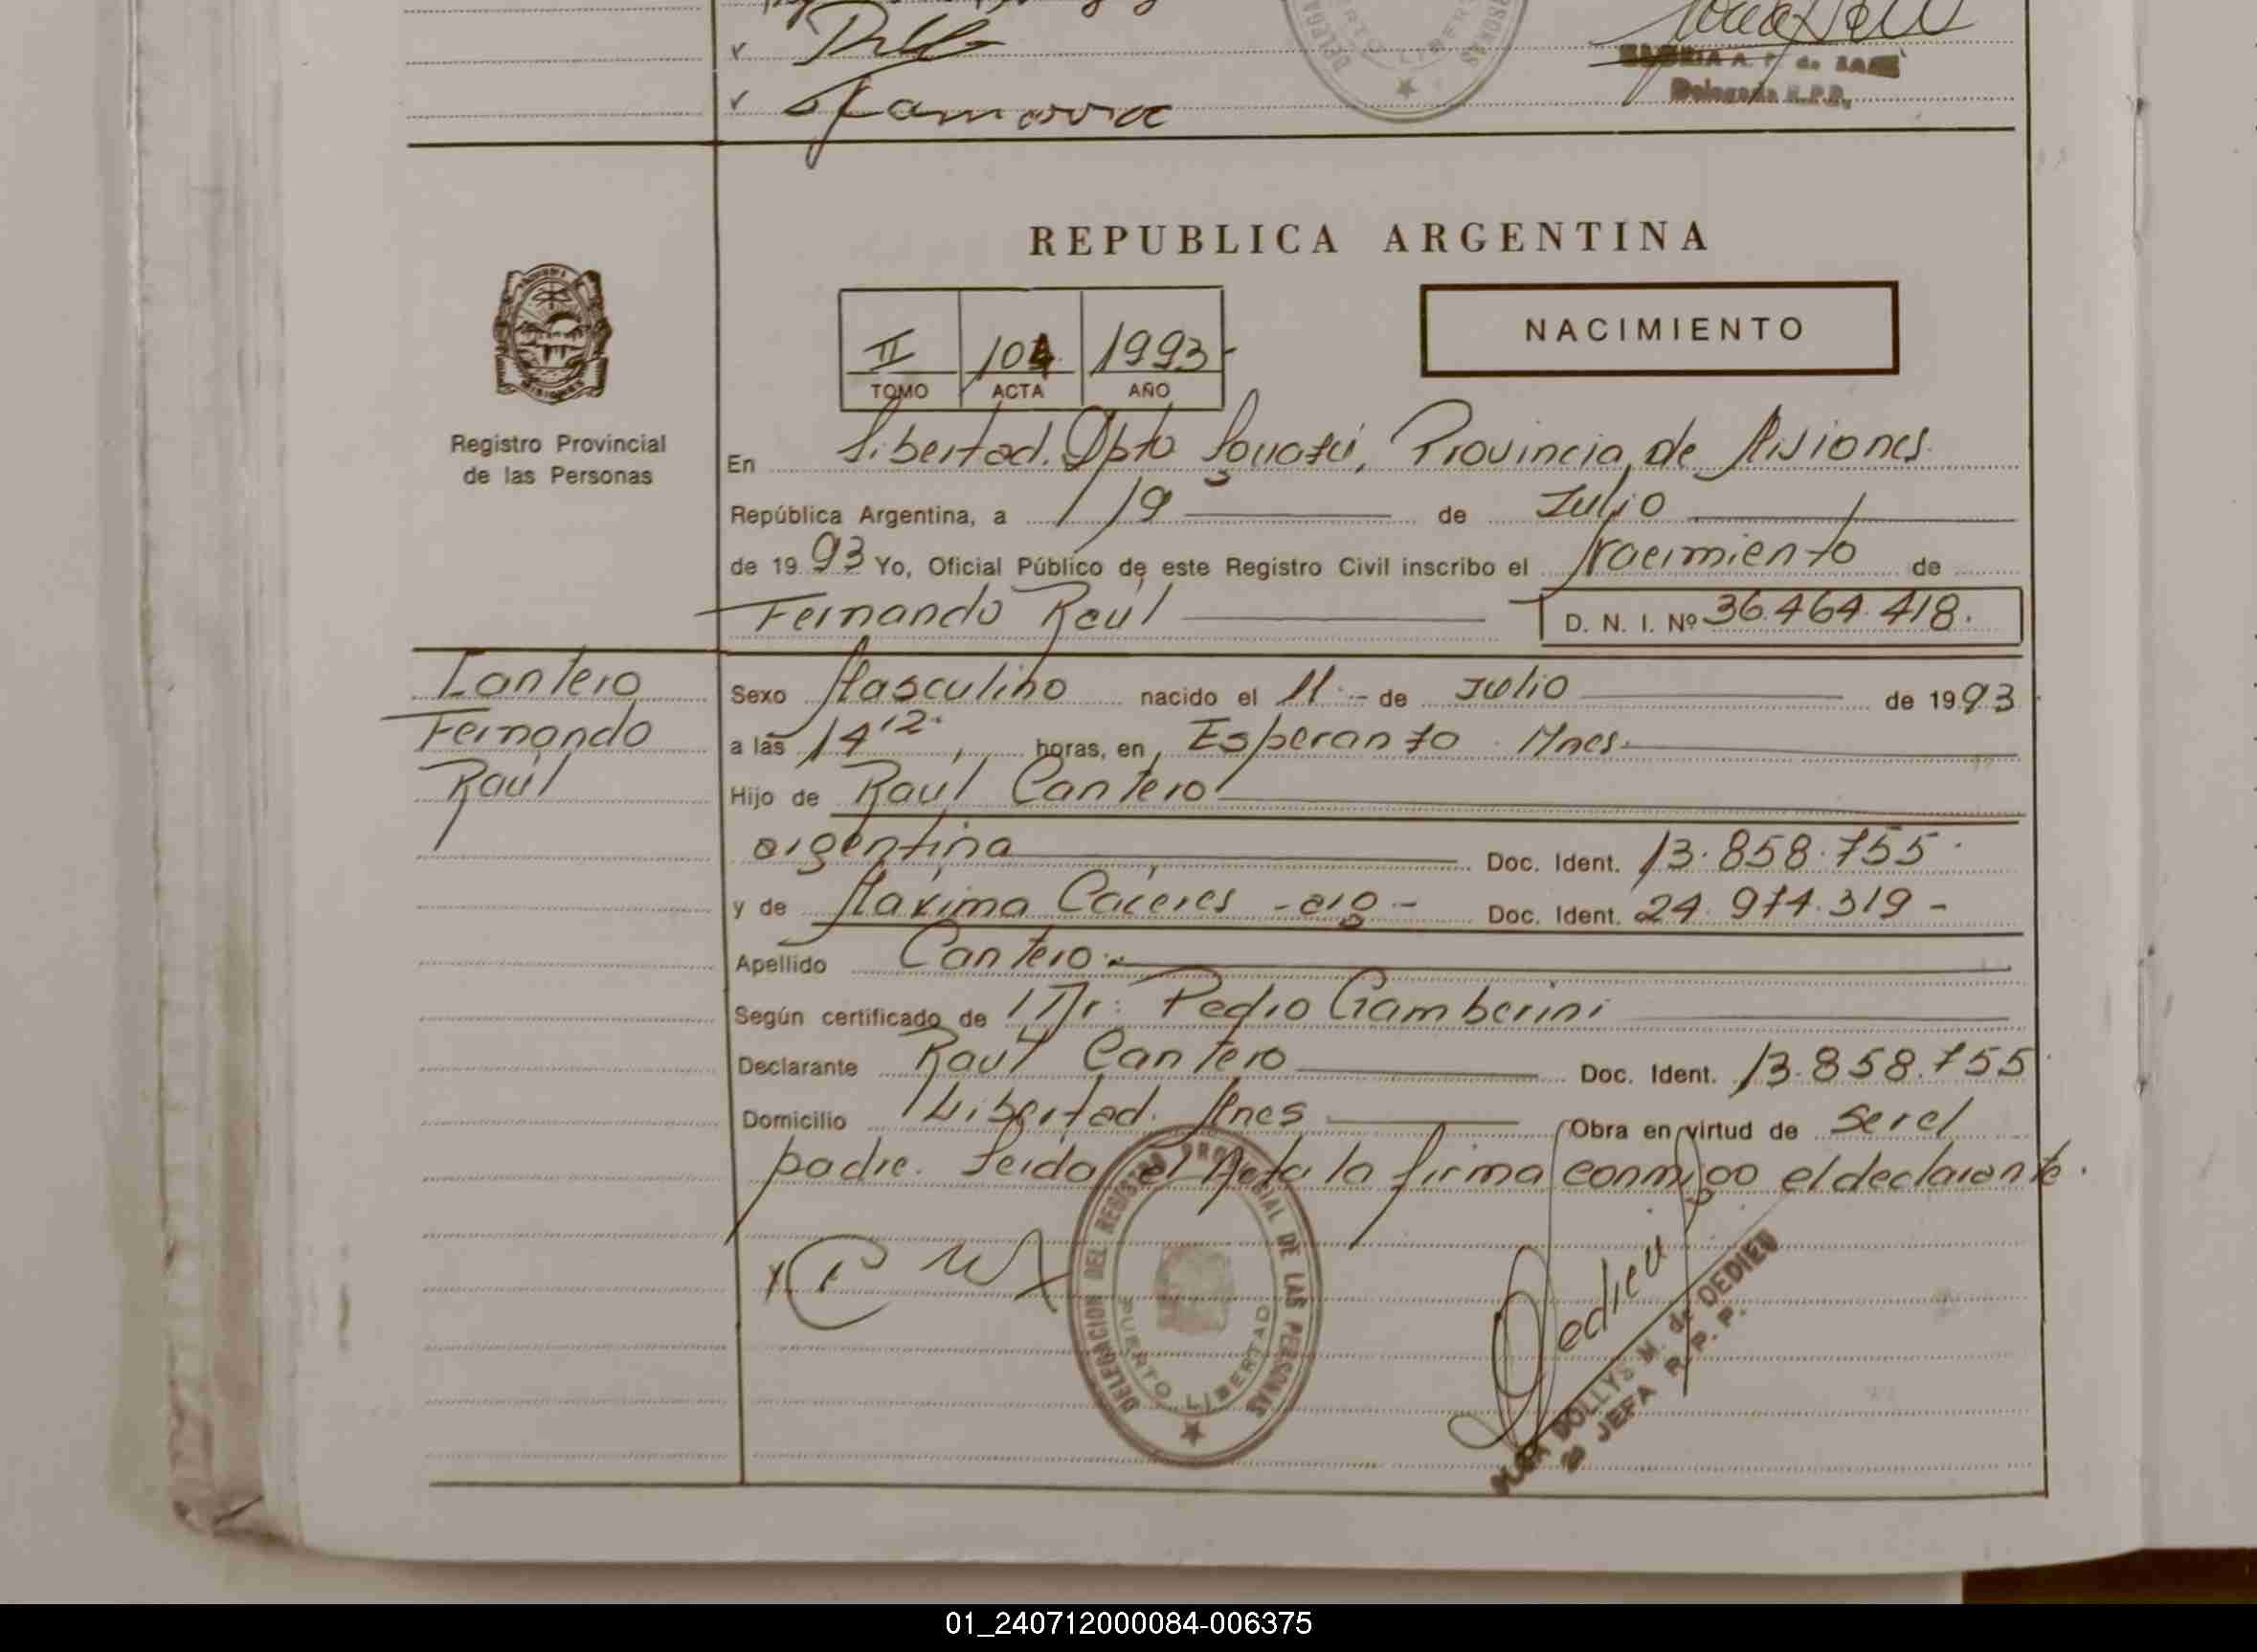 DELEGA
RTO LIBERT
RSONAS
de
Delegada R.P.P.
REPUBLICA ARGENTINA
II 104 1993-
TOMO ACTA AÑO
NACIMIENTO
Registro Provincial
de las Personas
En Libertad. Dpto Iguazú, Provincia de Misiones
República Argentina, a 19 de Julio
de 1993 Yo, Oficial Público de este Registro Civil inscribo el Nacimiento de
Fernando Raúl D. N. I. Nº 36.464.418.
Cantero
Fernando
Raúl
Sexo Masculino nacido el 11.- de Julio de 1993
a las 14'12. horas, en Esperanza. Mnes.
Hijo de Raul Cantero
argentina Doc. Ident. 13.858.755.
y de Maxima Caceres -arg- Doc. Ident. 24.974.319-
Apellido Cantero.-
Según certificado de Dr: Pedro Gamberini
Declarante Raul Cantero Doc. Ident. 13.858.755
Domicilio Libertad. Mnes Obra en virtud de ser el
padre. Leida el Acta la firma conmigo el declarante.
DELEGACION DEL REGISTRO PROVINCIAL DE LAS PERSONAS
PUERTO LIBERTAD
Dedieu
DOLLYS M. de DEDIEU
JEFA R. P. P.
01_240712000084-006375